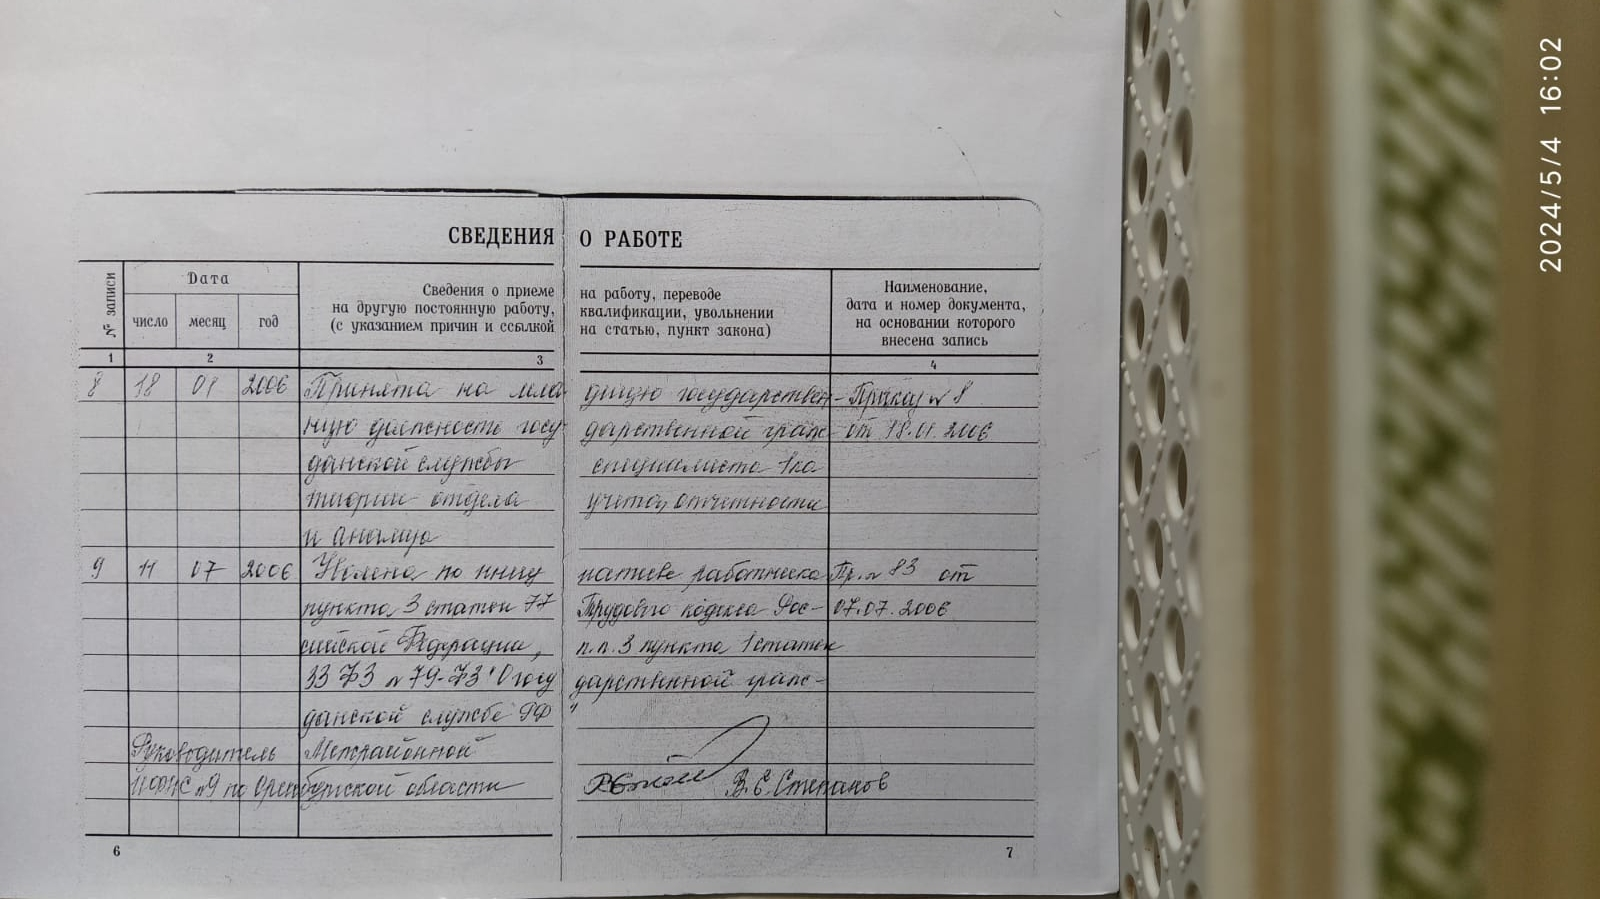 СВЕДЕНИЯ О РАБОТЕ
№ записи
Дата
число месяц год
Сведения о приеме на работу, переводе
на другую постоянную работу, квалификации, увольнении
(с указанием причин и ссылкой на статью, пункт закона)
Наименование,
дата и номер документа,
на основании которого
внесена запись
1 2 3 4
8 18 01 2006 Принята на младшую государствен- Приказ № 8
ную должность государственной граж- от 18.01.2006
данской службы специалиста 1го
отдела учета, отчетности
и анализа
9 11 07 2006 Уволена по инициативе работника Пр. № 83 от
пункта 3 статьи 77 Трудового кодекса Рос- 07.07.2006
сийской Федерации, п.п. 3 пункта 1 статьи
33 ФЗ № 79-ФЗ "О государственной граж-
данской службе РФ"
Руководитель Межрайонной
ИФНС №9 по Оренбургской области В.С. Степанов
6 7
2024/5/4 16:02